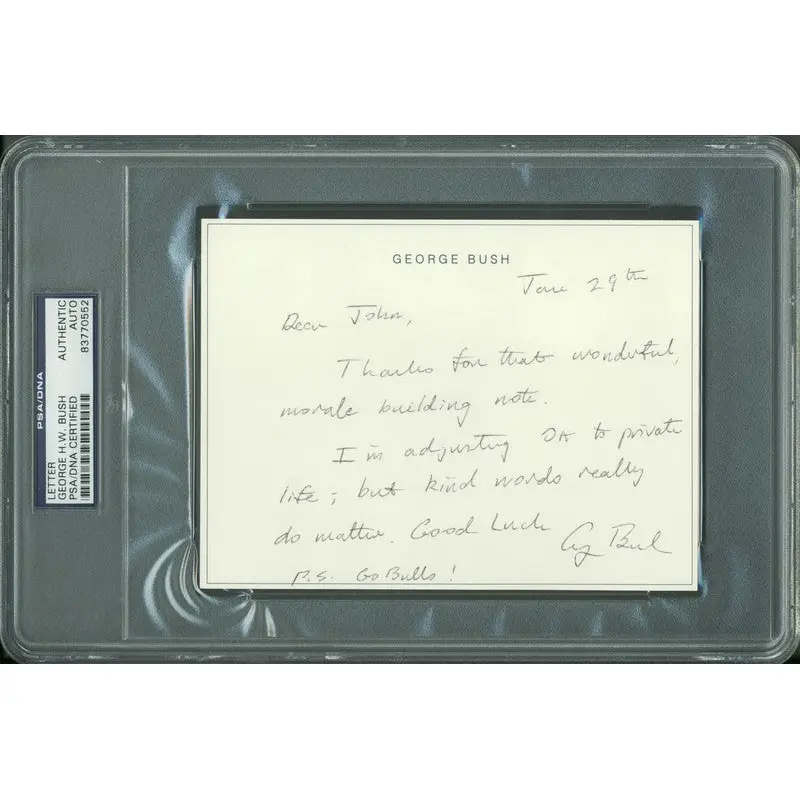 GEORGE BUSH
June 29th
Dear John,
Thanks for that wonderful,
morale building note.
I'm adjusting OK to private
life; but kind words really
do matter. Good Luck
P.S. Go Bulls!
PSA/DNA
LETTER
GEORGE H.W. BUSH
PSA/DNA CERTIFIED
AUTHENTIC
AUTO
83770552